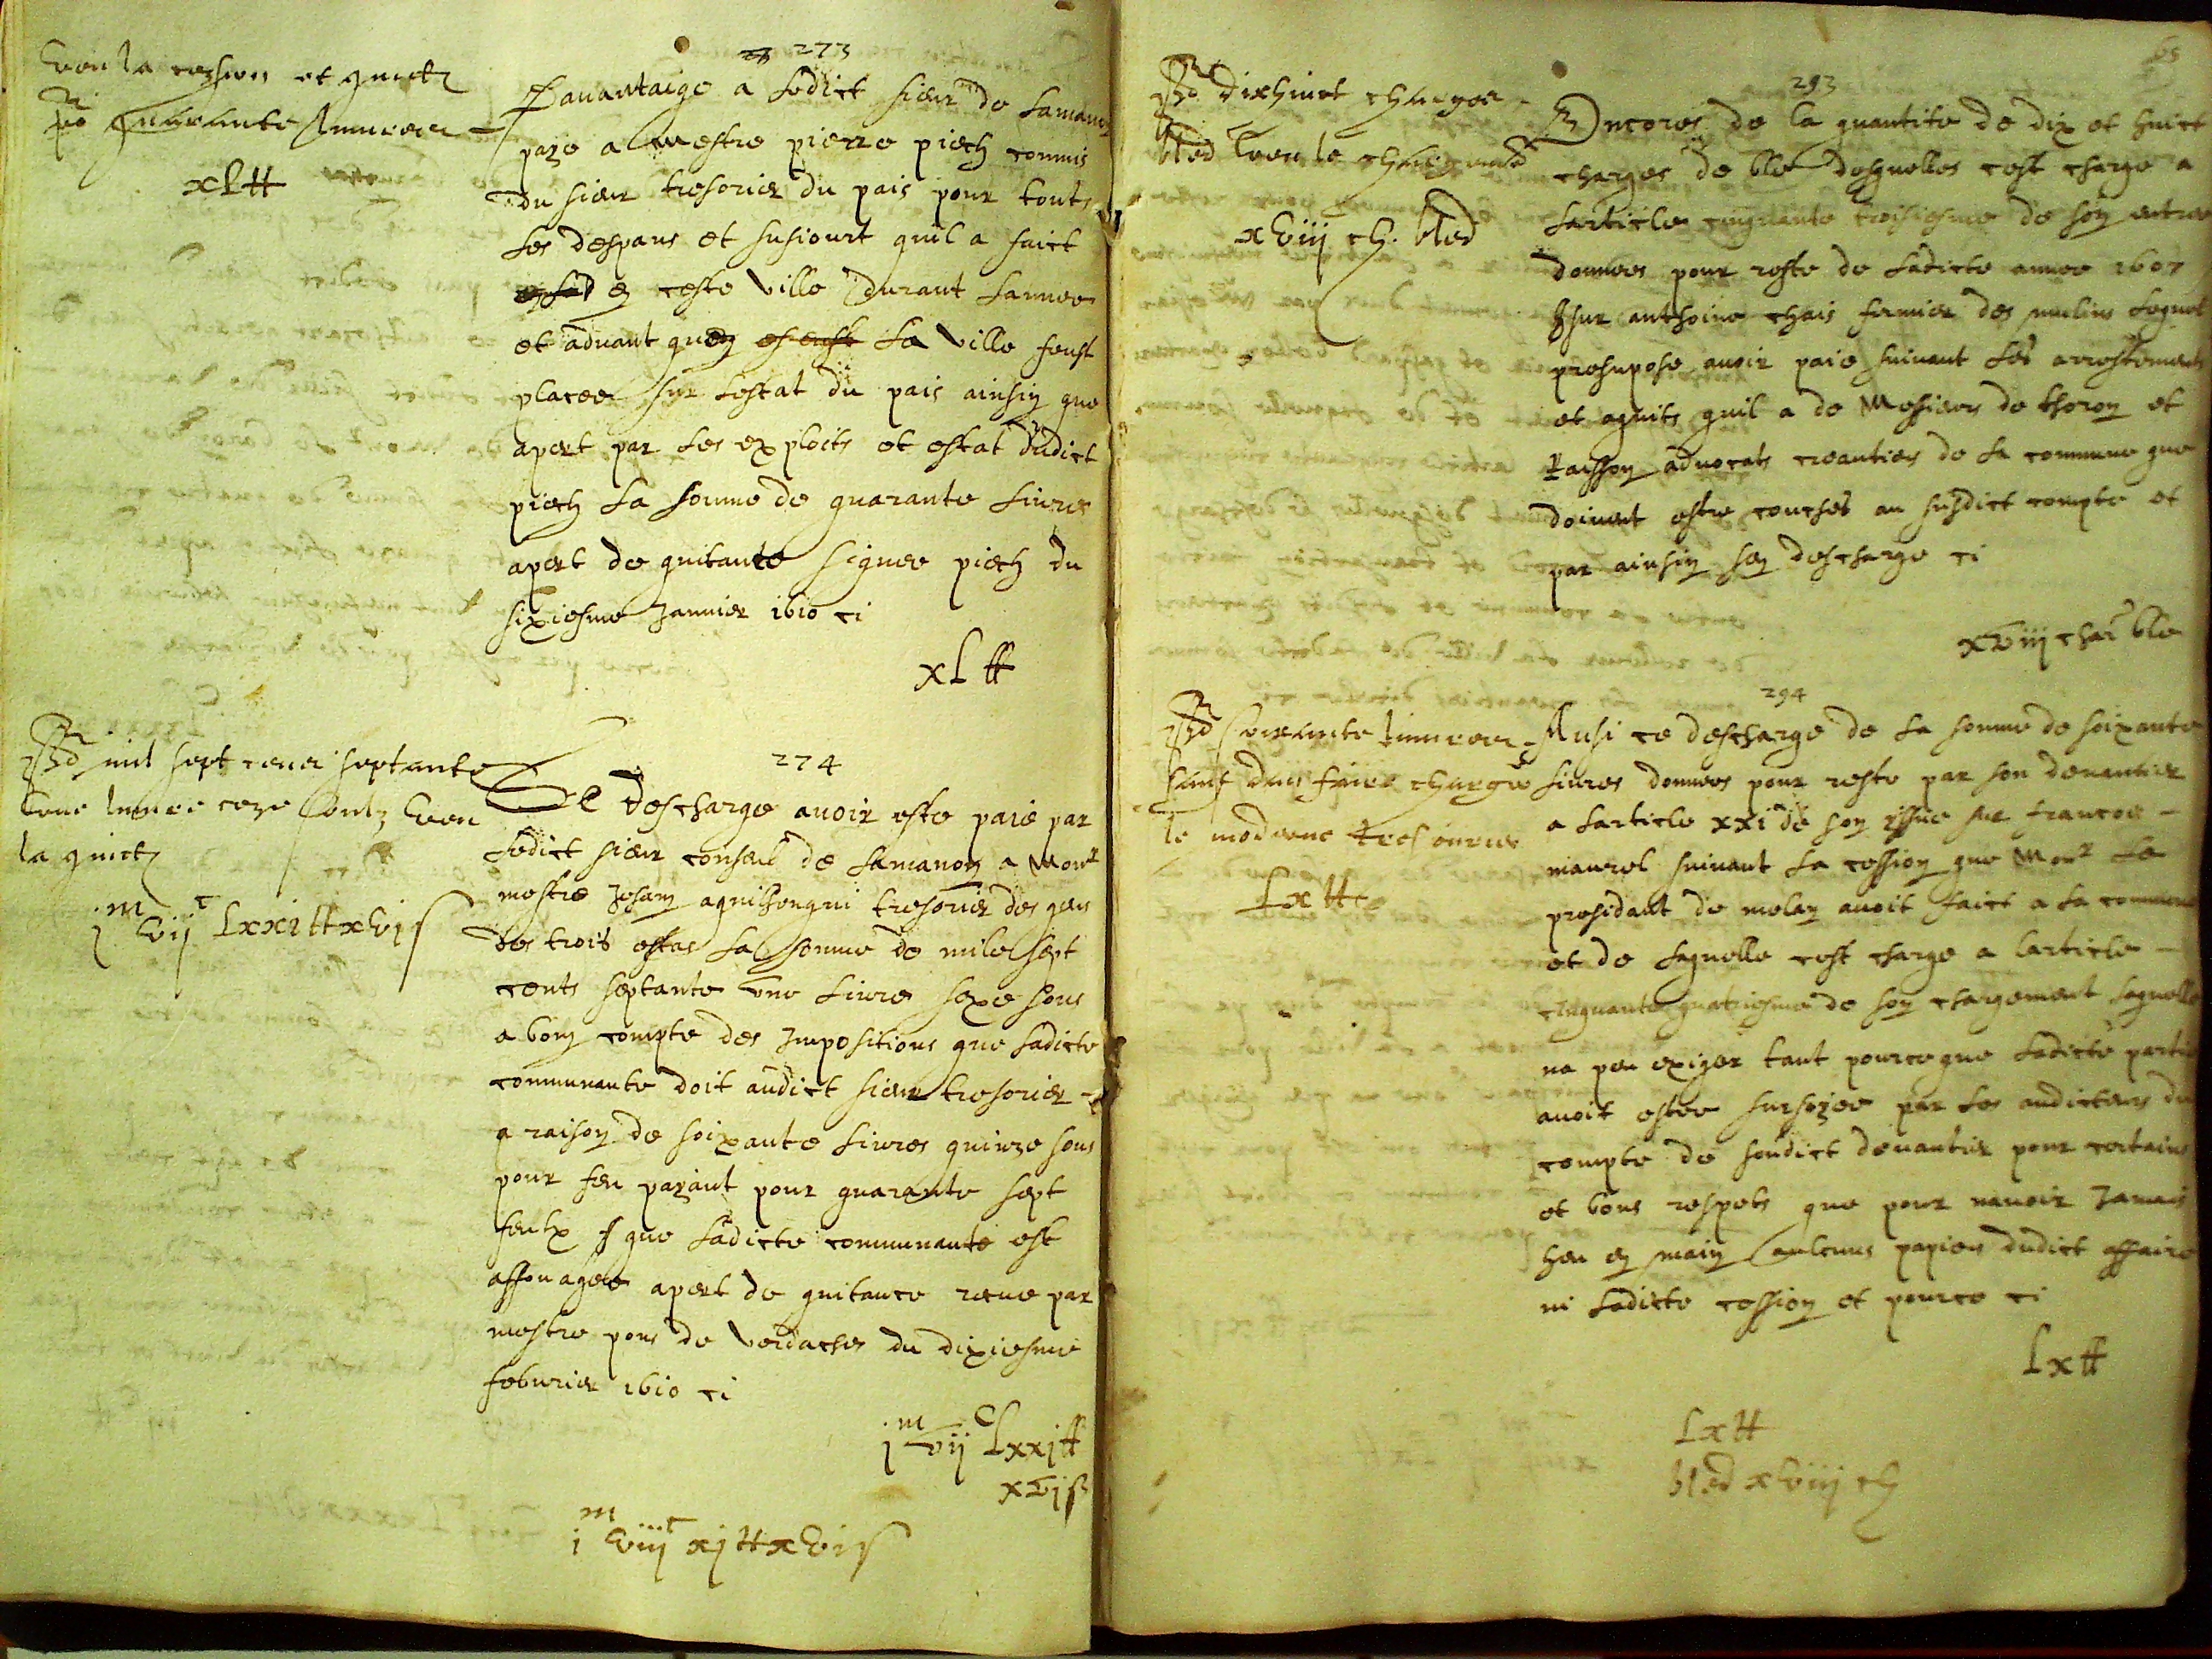 273
Veu la cession et quict
po quarante livres
xL tt
Davantaige a ledict sieur de Lamanon
paye a mestre pierre piech commis
du sieur tresorier du pais pour touts
les despans et susiourt quil a faict
en ceste ville durant lannee
et advant que la ville feust
placee sur lestat du pais ainsin que
apert par les exploits et estat dudict
piech la somme de quarante livres
apert de quitante signee piech du
sixiesme Janvier 1610 ci
xL tt
274
mil sept cens septante
une livre seze soulz veu
la quict
j m vij c Lxxi tt xvi s
Se descharge avoir este paié par
ledict sieur conseul de Lamanon a Monr
mestre Jehan aguihengui tresorier des gens
des trois estas la somme de mile sept
cents septante une livre seze sous
a bon compte des Impositions que ladicte
communaute doit audict sieur tresorier
a raison de soixante livres quinze sous
pour feu payant pour quarante sept
feulx que ladicte communauté est
affouagée apert de quitance receue par
mestre pons de verdaches du dixiesme
febvrier 1610 ci
j m vij c Lxxj tt
xvj s
i m viij c xj tt xvi s
65
293
dixhuict charges
bled veu le chargemt
xviij ch. bled
Encores de la quantite de dix et huict
charges de blé desquelles cest charge a
larticle cinquante troisiesme de son entree
donnees pour reste de ladicte annee 1607
sur anthoine chais fermier des mulins lequel
presupose avoir paié suivant les arrestements
et aquits quil a de Messieurs de thoron et
raisson advocats creantiers de la commune que
doivent estre couchés au susdict compte et
par ainsin sen descharge ci
xviij char blé
294
soixante livres
sauf den faire charge
le moderne tresourier
Lx tt
Ausi ce descharge de la somme de soixante
livres donnees pour reste par son devantier
a larticle xxi de son issue sur francoes
maurel suivant la cession que Monr le
presidant de molan avoit faict a la commune
et de laquelle cest charge a larticle
cinquante quatriesme de son chargement laquelle
na peu exiger tant pource que ladicte partie
avoit estee surseyee par les auditeurs du
compte de sondict devantier pour certains
et bons respets que pour navoir Jamais
heu en main aulcuns papiers dudict affaire
ni ladicte cession et pource ci
Lx tt
Lx tt
bled xviij ch